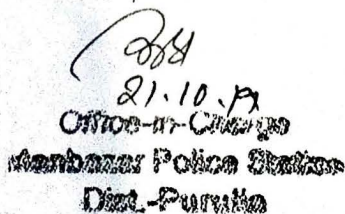 21.10.19
Office-in-Charge
Manbazar Police Station
Dist.-Purulia